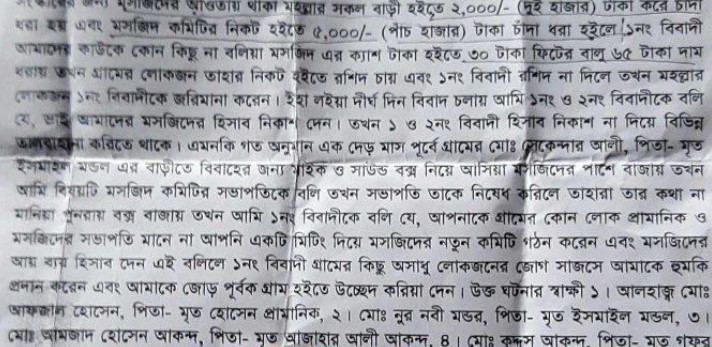 মসজিদের আওতায় থাকা মহল্লার সকল বাড়ী হইতে ২,০০০/- (দুই হাজার) টাকা করে চাঁদা
ধরা হয় এবং মসজিদ কমিটির নিকট হইতে ৫,০০০/- (পাঁচ হাজার) টাকা চাঁদা ধরা হইলে ১নং বিবাদী
আমাদের কাউকে কোন কিছু না বলিয়া মসজিদ এর ক্যাশ টাকা হইতে ৩০ টাকা ফিটের বালু ৬৫ টাকা দাম
ধরায় তখন গ্রামের লোকজন তাহার নিকট হইতে রশিদ চায় এবং ১নং বিবাদী রশিদ না দিলে তখন মহল্লার
লোকজন ১নং বিবাদীকে জরিমানা করেন। ইহা লইয়া দীর্ঘ দিন বিবাদ চলায় আমি ১নং ও ২নং বিবাদীকে বলি
যে, ভাই আমাদের মসজিদের হিসাব নিকাশ দেন। তখন ১ ও ২নং বিবাদী হিসাব নিকাশ না দিয়ে বিভিন্ন
করিতে থাকে। এমনকি গত অনুমান এক দেড় মাস পূর্বে গ্রামের মোঃ আলী, পিতা- মৃত
ইসমাইল মন্ডল এর বাড়ীতে বিবাহের জন্য মাইক ও সাউন্ড বক্স নিয়ে আসিয়া মসজিদের পাশে বাজায় তখন
আমি বিষয়টি মসজিদ কমিটির সভাপতিকে বলি তখন সভাপতি তাকে নিষেধ করিলে তাহারা তার কথা না
মানিয়া পুনরায় বক্স বাজায় তখন আমি ১নং বিবাদীকে বলি যে, আপনাকে গ্রামের কোন লোক প্রামানিক ও
মসজিদের সভাপতি মানে না আপনি একটি মিটিং দিয়ে মসজিদের নতুন কমিটি গঠন করেন এবং মসজিদের
আয় ব্যয় হিসাব দেন এই বলিলে ১নং বিবাদী গ্রামের কিছু অসাধু লোকজনের যোগ সাজসে আমাকে হুমকি
প্রদান করেন এবং আমাকে জোড় পূর্বক গ্রাম হইতে উচ্ছেদ করিয়া দেন। উক্ত ঘটনার স্বাক্ষী ১। আলহাজ্ব মোঃ
হোসেন, পিতা- মৃত হোসেন প্রামানিক, ২। মোঃ নুর নবী মন্ডল, পিতা- মৃত ইসমাইল মন্ডল, ৩।
মোঃ আমজাদ হোসেন আকন্দ, পিতা- মৃত আজাহার আলী আকন্দ, ৪। মোঃ কুদ্দুস আকন্দ, পিতা- মৃত গফুর